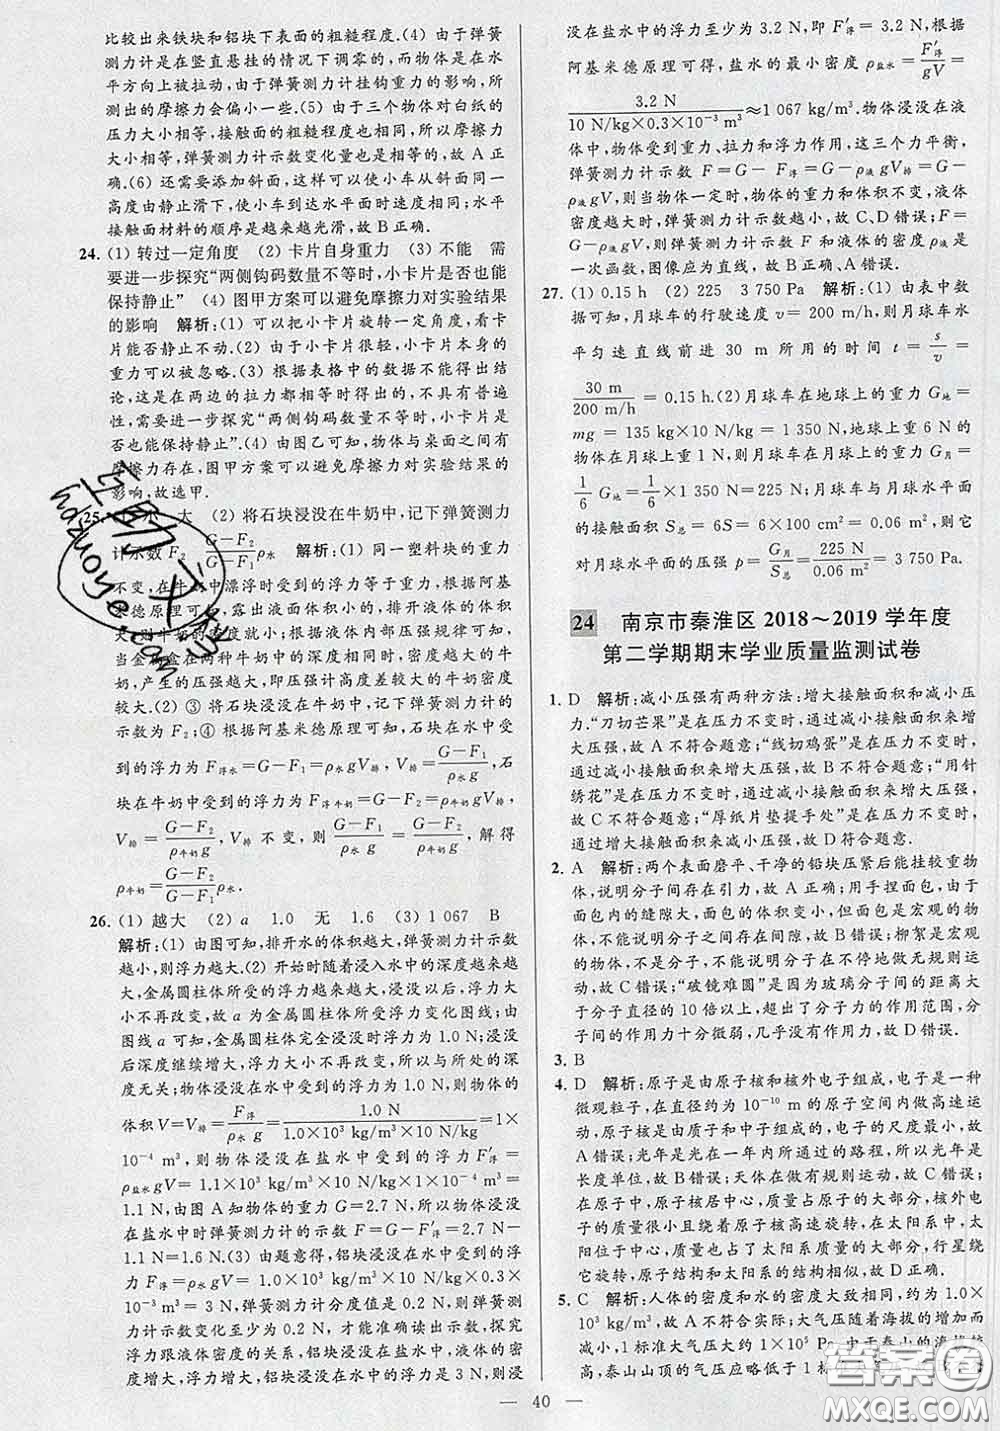 比较出来铁块和铝块下表面的粗糙程度.(4) 由于弹簧
测力计是在竖直悬挂的情况下调零的,而物体是在水
平方向上被拉动,由于弹簧测力计挂钩重力的影响,所
测出的摩擦力会偏小一些.(5) 由于三个物体对白纸的
压力大小相等,接触面的粗糙程度也相同,所以摩擦力
大小相等,弹簧测力计示数变化量也是相等的,故 A 正
确.(6) 还需要添加斜面,这样可以使小车从斜面同一
高度由静止滑下,使小车到达水平面时速度相同;水平
接触面材料的顺序是越来越光滑,故 B 正确.
24. (1) 转过一定角度 (2) 卡片自身重力 (3) 不能 需
要进一步探究“两侧钩码数量不等时,小卡片是否也能
保持静止” (4) 图甲方案可以避免摩擦力对实验结果
的影响 解析:(1) 可以把小卡片旋转一定角度,看卡
片能否静止不动.(2) 由于小卡片很轻,小卡片本身的
重力可以被忽略.(3) 根据表格中的数据不能得出结
论,这是在两边的拉力都相等时得出的,不具有普遍
性,需进一步探究“两侧钩码数量不等时,小卡片是
否也能保持静止”.(4) 由图乙可知,物体与桌面之间有
摩擦力存在,图甲方案可以避免摩擦力对实验结果的
影响,故选甲.
25. 大 (2) 将石块浸没在牛奶中,记下弹簧测力
计示数 F₂ (G−F₂)/(G−F₁)ρ水 解析:(1) 同一塑料块的重力
不变,在牛奶中漂浮时受到的浮力等于重力,根据阿基
米德原理可知,露出的体积小的,排开液体的体积
大,则牛奶的密度就小;根据液体内部压强规律可知,
当金属盒在两种牛奶中的深度相同时,密度越大的牛
奶,产生的压强越大,即压强计高度差大的牛奶密度
较大.(2) ③ 将石块浸没在牛奶中,记下弹簧测力计的
示数为 F₂;④ 根据阿基米德原理可知,石块在水中受
到的浮力为 F浮水=G−F₁=ρ水gV排,V排=(G−F₁)/(ρ水g),石
块在牛奶中受到的浮力为 F浮牛奶=G−F₂=ρ牛奶gV排,
V排=(G−F₂)/(ρ牛奶g),V排 不变,则 (G−F₁)/(ρ水g)=(G−F₂)/(ρ牛奶g),解得
ρ牛奶=(G−F₂)/(G−F₁)ρ水.
26. (1) 越大 (2) a 1.0 无 1.6 (3) 1 067 B
解析:(1) 由图可知,排开水的体积越大,弹簧测力计示数
越小,则浮力越大.(2) 开始时随着浸入水中的深度越来越
大,金属圆柱体所受的浮力越来越大,浸没以后,浮力大小
不再改变,故 a 为金属圆柱体所受浮力变化图线;由
图线 a 可知,金属圆柱体完全浸没时浮力为 1.0 N;浸没
后深度继续增大,浮力大小不再改变,即与所处的深
度无关;物体浸没在水中受到的浮力为 1.0 N,则物体
体积V=V排=F浮/(ρ水g)=1.0 N/(1.0×10³ kg/m³×10 N/kg)=1×
10⁻⁴ m³,则物体浸没在盐水中受到的浮力 F′浮=
ρ盐水gV=1.1×10³ kg/m³×10 N/kg×1×10⁻⁴ m³=
1.1 N,由图 A 知物体的重力 G=2.7 N,所以物体浸没
在盐水中时弹簧测力计的示数 F=G−F′浮=2.7 N−
1.1 N=1.6 N.(3) 由题意得,铝块浸没在水中受到的浮
力 F浮=ρ水gV=1.0×10³ kg/m³×10 N/kg×0.3×
10⁻³ m³=3 N,弹簧测力计分度值是 0.2 N,则弹簧测
力计示数变化至少为 0.2 N,才能准确读出示数,探究
浮力跟液体密度的关系,铝块浸没在水中,液体的密
度增大,浮力增大,铝块浸没在水中的浮力是 3 N,则浸
没在盐水中的浮力至少为 3.2 N,即 F′浮=3.2 N,根据
阿基米德原理可得,盐水的最小密度 ρ盐水=F′浮/(gV)=
3.2 N/(10 N/kg×0.3×10⁻³ m³)≈1 067 kg/m³.物体浸没在液
体中,物体受到重力、拉力和浮力作用,这三个力平衡,
弹簧测力计示数 F=G−F浮=G−ρ液gV排=G−
ρ液gV,则当物体一定时,物体的重力和体积不变,液体
密度越大时,弹簧测力计示数越小,故 C、D 错误;F=
G−ρ液gV,弹簧测力计示数 F 和液体的密度 ρ液是
一次函数,图像应为直线,故 B 正确,A 错误.
27. (1) 0.15 h (2) 225 3 750 Pa 解析:(1) 由表中数
据可知,月球车的行驶速度 v=200 m/h,则月球车水
平匀速直线前进 30 m 所用的时间 t=s/v=
30 m/(200 m/h)=0.15 h.(2)月球车在地球上的重力 G地=
mg=135 kg×10 N/kg=1 350 N,地球上重 6 N 的
物体在月球上重 1 N,则月球车在月球上的重力 G月=
1/6 G地=1/6×1 350 N=225 N;月球车与月球水平面
的接触面积 S总=6S=6×100 cm²=0.06 m²,则它
对月球水平面的压强 p=G月/S总=225 N/0.06 m²=3 750 Pa.
24 南京市秦淮区 2018～2019 学年度
第二学期期末学业质量监测试卷
1. D 解析:减小压强有两种方法:增大接触面积和减小压
力.“刀切芒果”是在压力不变时,通过减小接触面积来增
大压强,故 A 不符合题意;“线切鸡蛋”是在压力不变时,
通过减小接触面积来增大压强,故 B 不符合题意;“用针
绣花”是在压力不变时,通过减小接触面积来增大压强,
故 C 不符合题意;“厚纸片垫提手处”是在压力不变时,
通过增大接触面积来减小压强,故 D 符合题意.
2. A 解析:两个表面磨平、干净的铅块压紧后能挂较重物
体,说明分子间存在引力,故 A 正确;用手捏面包,由于
面包内的缝隙大,面包的体积变小,但面包是宏观的物
体,不能说明分子之间存在间隙,故 B 错误;柳絮是宏观
的物体,不是分子,不能说明分子在不停地做无规则运
动,故 C 错误;“破镜难圆”是因为玻璃分子间的距离大
于分子直径的 10 倍以上,超出了分子力的作用范围,分
子间的作用力十分微弱,几乎没有作用力,故 D 错误.
3. B
4. D 解析:原子是由原子核和核外电子组成,电子是一种
微观粒子,在直径约为 10⁻¹⁰ m 的原子空间内做高速运
动,原子核是由质子和中子组成的,电子的尺度最小,
故 A 错误;光年是光在一年内所通过的路程,所以光年是
长度单位,故 B 错误;天体在做有规则运动,故 C 错误;在
原子中,原子核居中心,质量占原子的大部分,核外电子
的质量很小且绕着原子核高速旋转,在太阳系中,太
阳位于中心,质量占了太阳系质量的大部分,行星绕着
它旋转,原子结构和太阳系的结构相似,故 D 正确.
5. C 解析:人体的密度和水的密度大致相同,约为 1.0×
10³ kg/m³,故 A 不符合实际;大气压随着海拔的增高而
减小,1 标准大气压大约 1×10⁵ Pa,
小,泰山山顶的气压应略低于 1 标
— 40 —
答案圈
MXQE.COM